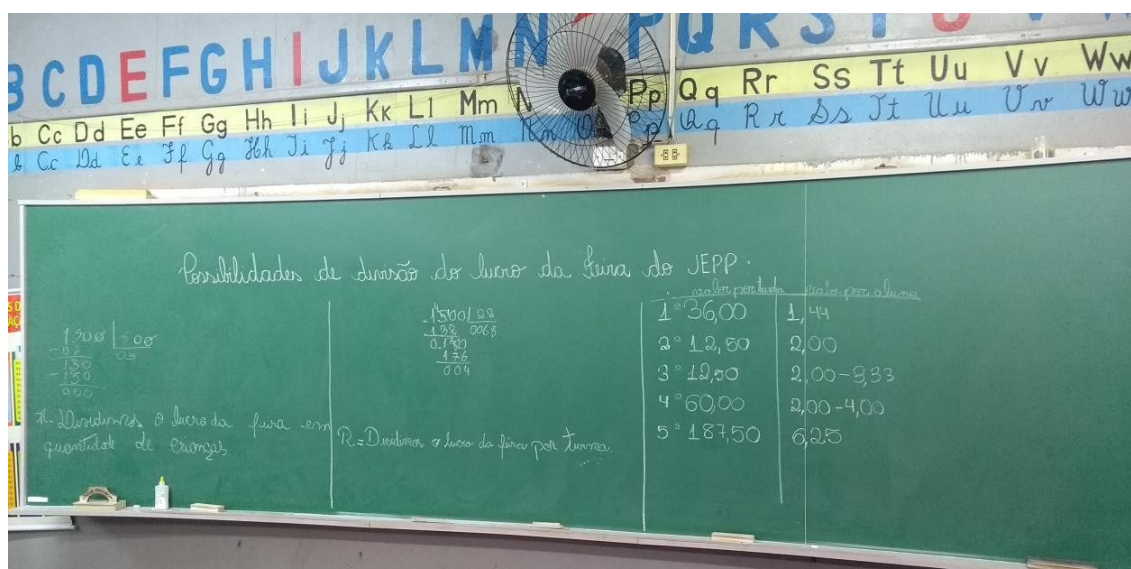 B C D E F G H I J K L M N P Q R S T U
b Cc Dd Ee Ff Gg Hh Ii Jj Kk Ll Mm Pp Qq Rr Ss Tt Uu Vv Ww
b Cc Dd Ee Ff Gg Hh Ii Jj Kk Ll Mm Pp Qq Rr Ss Tt Uu Vv Ww
Possibilidades de divisão do lucro da feira do JEPP.
1.500 500
150
- 150
000
R. Dividimos o lucro da feira em
quantidade de crianças.
1500 22
- 132 0068
0180
176
004
R= Dividimos o lucro da feira por turma.
valor por turma valor por aluno
1º 36,00 1,44
2º 12,50 2,00
3º 12,50 2,00-3,33
4º 60,00 2,00-4,00
5º 187,50 6,25